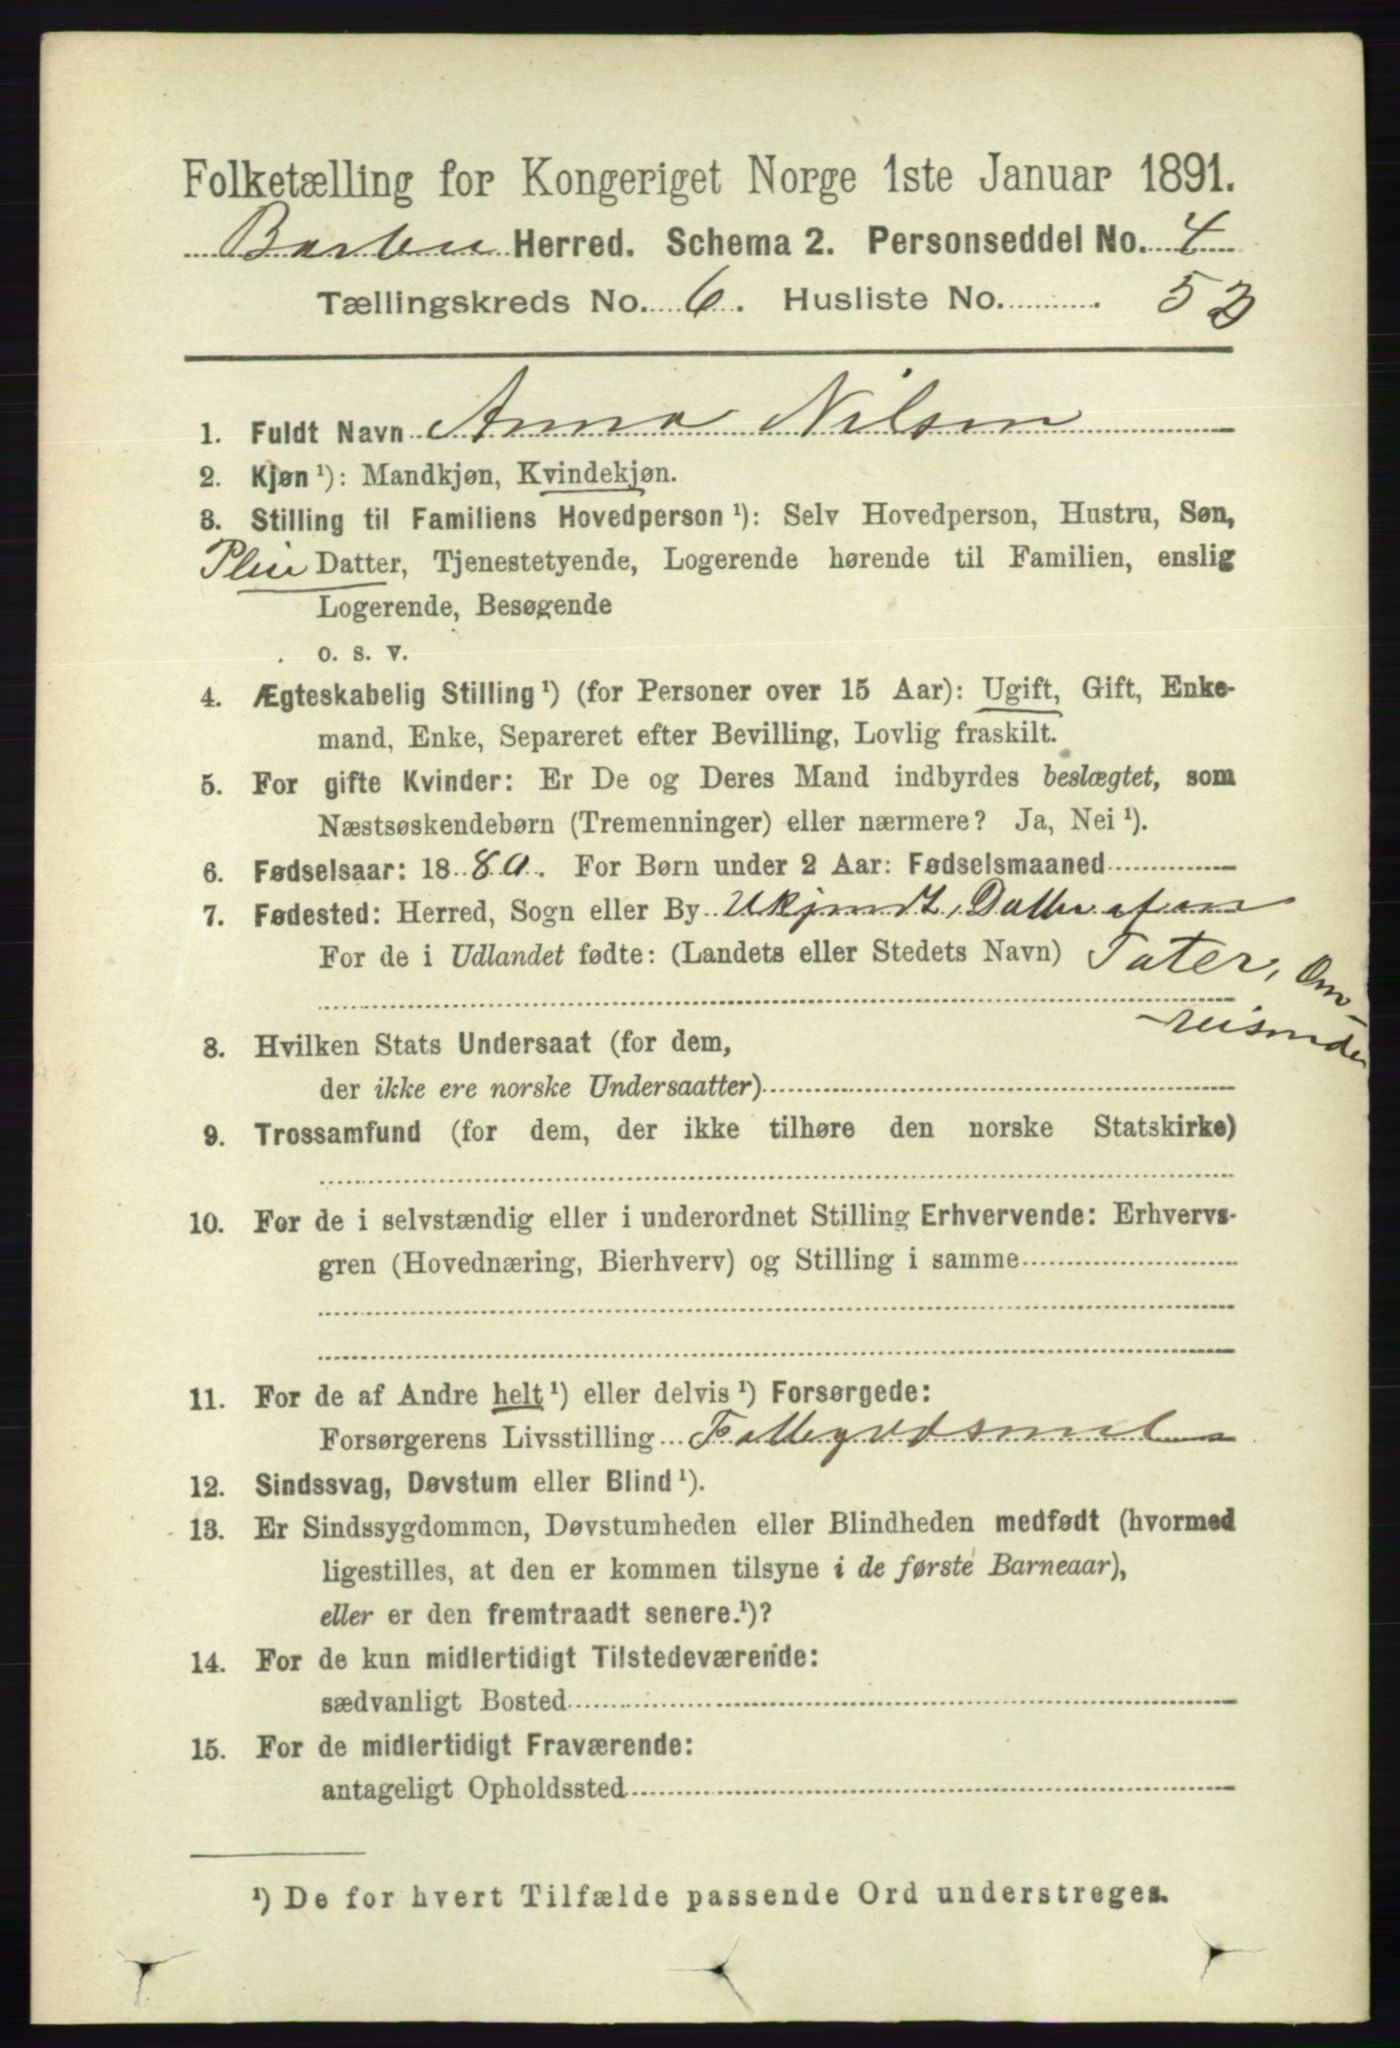 Folketælling for Kongeriget Norge 1ste Januar 1891.
Barbu Herred. Schema 2. Personseddel No. 4
Tællingskreds No. 6. Husliste No. 53
1. Fuldt Navn Anna Nilsen
2. Kjøn ¹): Mandkjøn, Kvindekjøn.
3. Stilling til Familiens Hovedperson ¹): Selv Hovedperson, Hustru, Søn,
Pleie Datter, Tjenestetyende, Logerende hørende til Familien, enslig
Logerende, Besøgende
o. s. v.
4. Ægteskabelig Stilling ¹) (for Personer over 15 Aar): Ugift, Gift, Enke-
mand, Enke, Separeret efter Bevilling, Lovlig fraskilt.
5. For gifte Kvinder: Er De og Deres Mand indbyrdes beslægtet, som
Næstsøskendebørn (Tremenninger) eller nærmere? Ja, Nei ¹).
6. Fødselsaar: 1880. For Børn under 2 Aar: Fødselsmaaned
7. Fødested: Herred, Sogn eller By Ukjendt, Datter af en
For de i Udlandet fødte: (Landets eller Stedets Navn) Tater, Om-
-reisende
8. Hvilken Stats Undersaat (for dem,
der ikke ere norske Undersaatter)
9. Trossamfund (for dem, der ikke tilhøre den norske Statskirke)
10. For de i selvstændig eller i underordnet Stilling Erhvervende: Erhvervs-
gren (Hovednæring, Bierhverv) og Stilling i samme
11. For de af Andre helt ¹) eller delvis ¹) Forsørgede:
Forsørgerens Livsstilling
12. Sindssvag, Døvstum eller Blind ¹).
13. Er Sindssygdommen, Døvstumheden eller Blindheden medfødt (hvormed
ligestilles, at den er kommen tilsyne i de første Barneaar),
eller er den fremtraadt senere.¹)?
14. For de kun midlertidigt Tilstedeværende:
sædvanligt Bosted
15. For de midlertidigt Fraværende:
antageligt Opholdssted
¹) De for hvert Tilfælde passende Ord understreges.